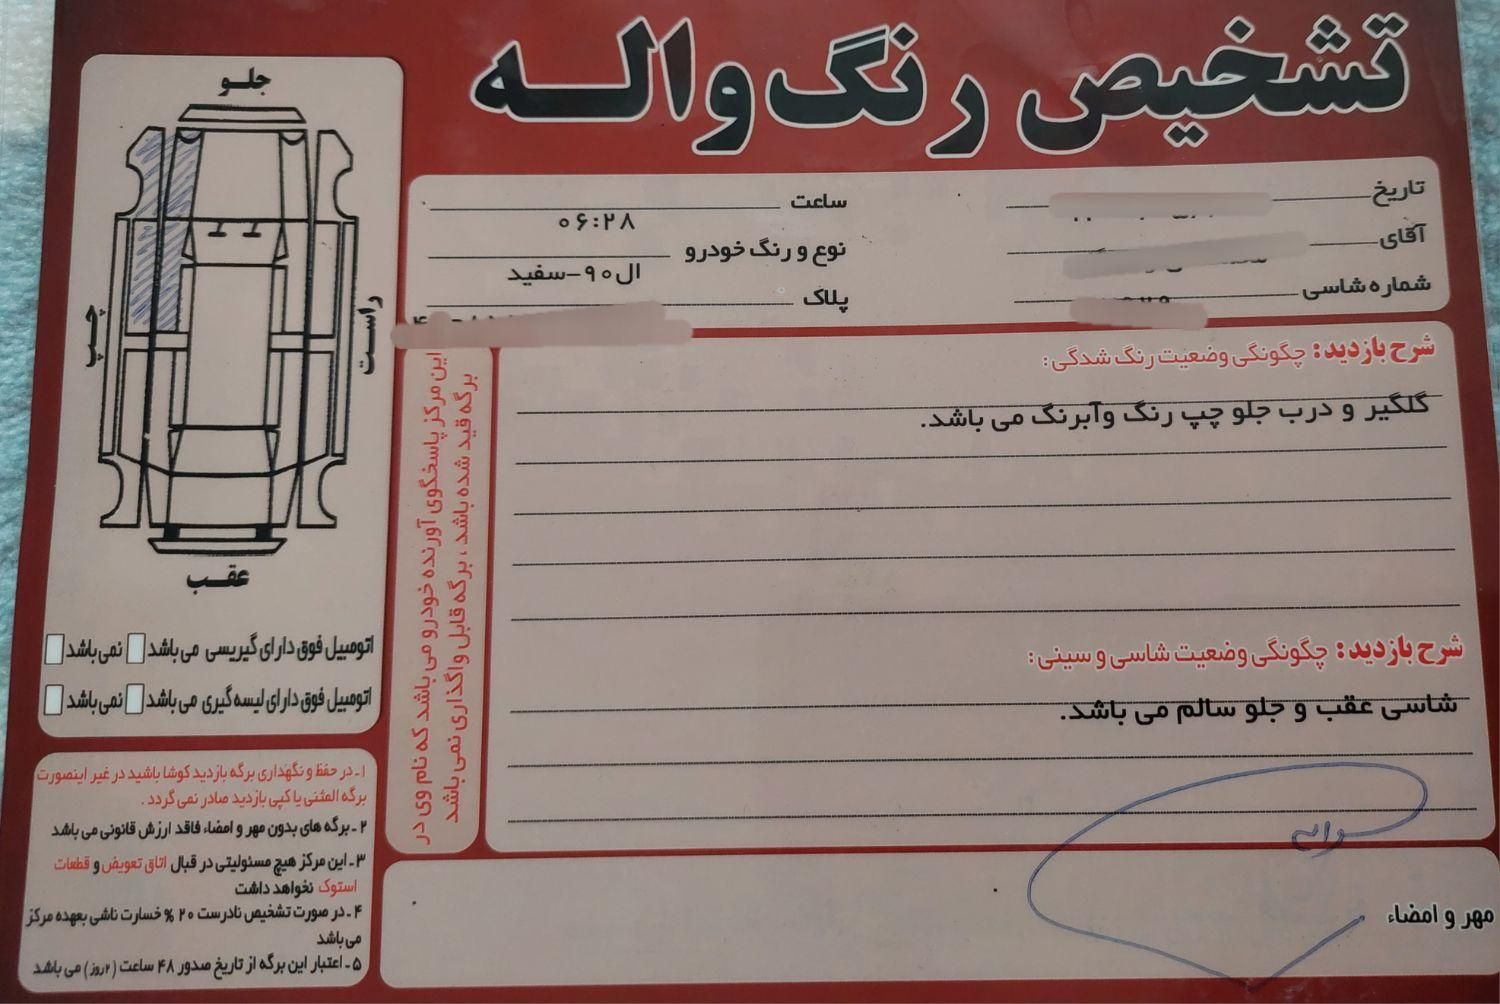 تشخیص رنگ واله
تاریخ
ساعت
۰۶:۲۸
آقای
نوع و رنگ خودرو
ال۹۰-سفید
شماره شاسی
پلاک
جلو
چپ
راست
عقب
اتومبیل فوق دارای گیریسی می باشد نمی باشد
اتومبیل فوق دارای لیسه گیری می باشد نمی باشد
شرح بازدید: چگونگی وضعیت رنگ شدگی:
گلگیر و درب جلو چپ رنگ وآبرنگ می باشد.
شرح بازدید: چگونگی وضعیت شاسی و سینی:
شاسی عقب و جلو سالم می باشد.
این مرکز پاسخگوی آورنده خودرو می باشد که نام وی در
برگه قید شده باشد، برگه قابل واگذاری نمی باشد
۱ـ در حفظ و نگهداری برگه بازدید کوشا باشید در غیر اینصورت
برگه المثنی یا کپی بازدید صادر نمی گردد.
۲ـ برگه های بدون مهر و امضاء فاقد ارزش قانونی می باشد
۳ـ این مرکز هیچ مسئولیتی در قبال اتاق تعویض و قطعات
استوک نخواهد داشت
۴ـ در صورت تشخیص نادرست ۲۰ % خسارت ناشی بعهده مرکز
می باشد
۵ـ اعتبار این برگه از تاریخ صدور ۴۸ ساعت (۲روز) می باشد
مهر و امضاء